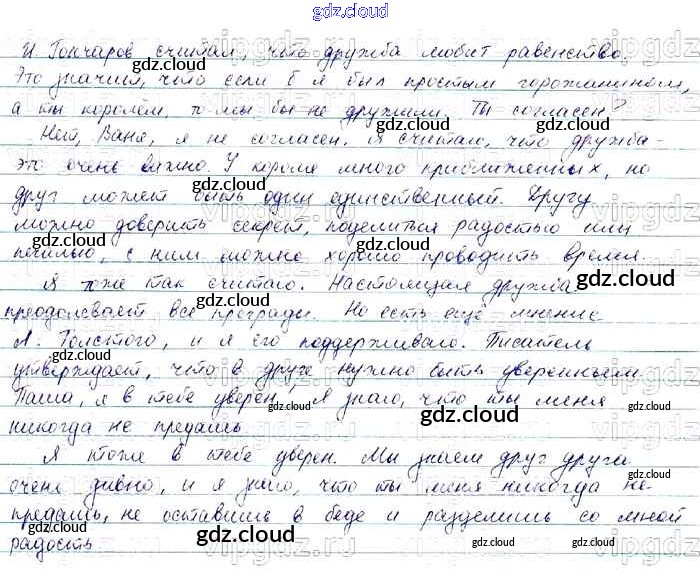 gdz.cloud
И. Гончаров считал, что дружба любит равенство.
Это значит, что если б я был простым горожанином,
а ты королём, то мы бы не дружили. Ты согласен?
Нет, Ваня, я не согласен. Я считаю, что дружба -
это очень важно. У короля много приближенных, но
друг может быть один единственный. Другу
можно доверить секрет, поделиться радостью или
печалью, с ним можно хорошо проводить время.
Я тоже так считаю. Настоящая дружба
преодолевает все преграды. Но есть ещё мнение
Л. Толстого, и я его поддерживаю. Писатель
утверждает, что в друге нужно быть уверенным.
Паша, я в тебе уверен, я знаю, что ты меня
никогда не предашь.
Я тоже в тебе уверен. Мы знаем друг друга
очень давно, и я знаю, что ты меня никогда не
предашь, не оставишь в беде и разделишь со мной
радость.